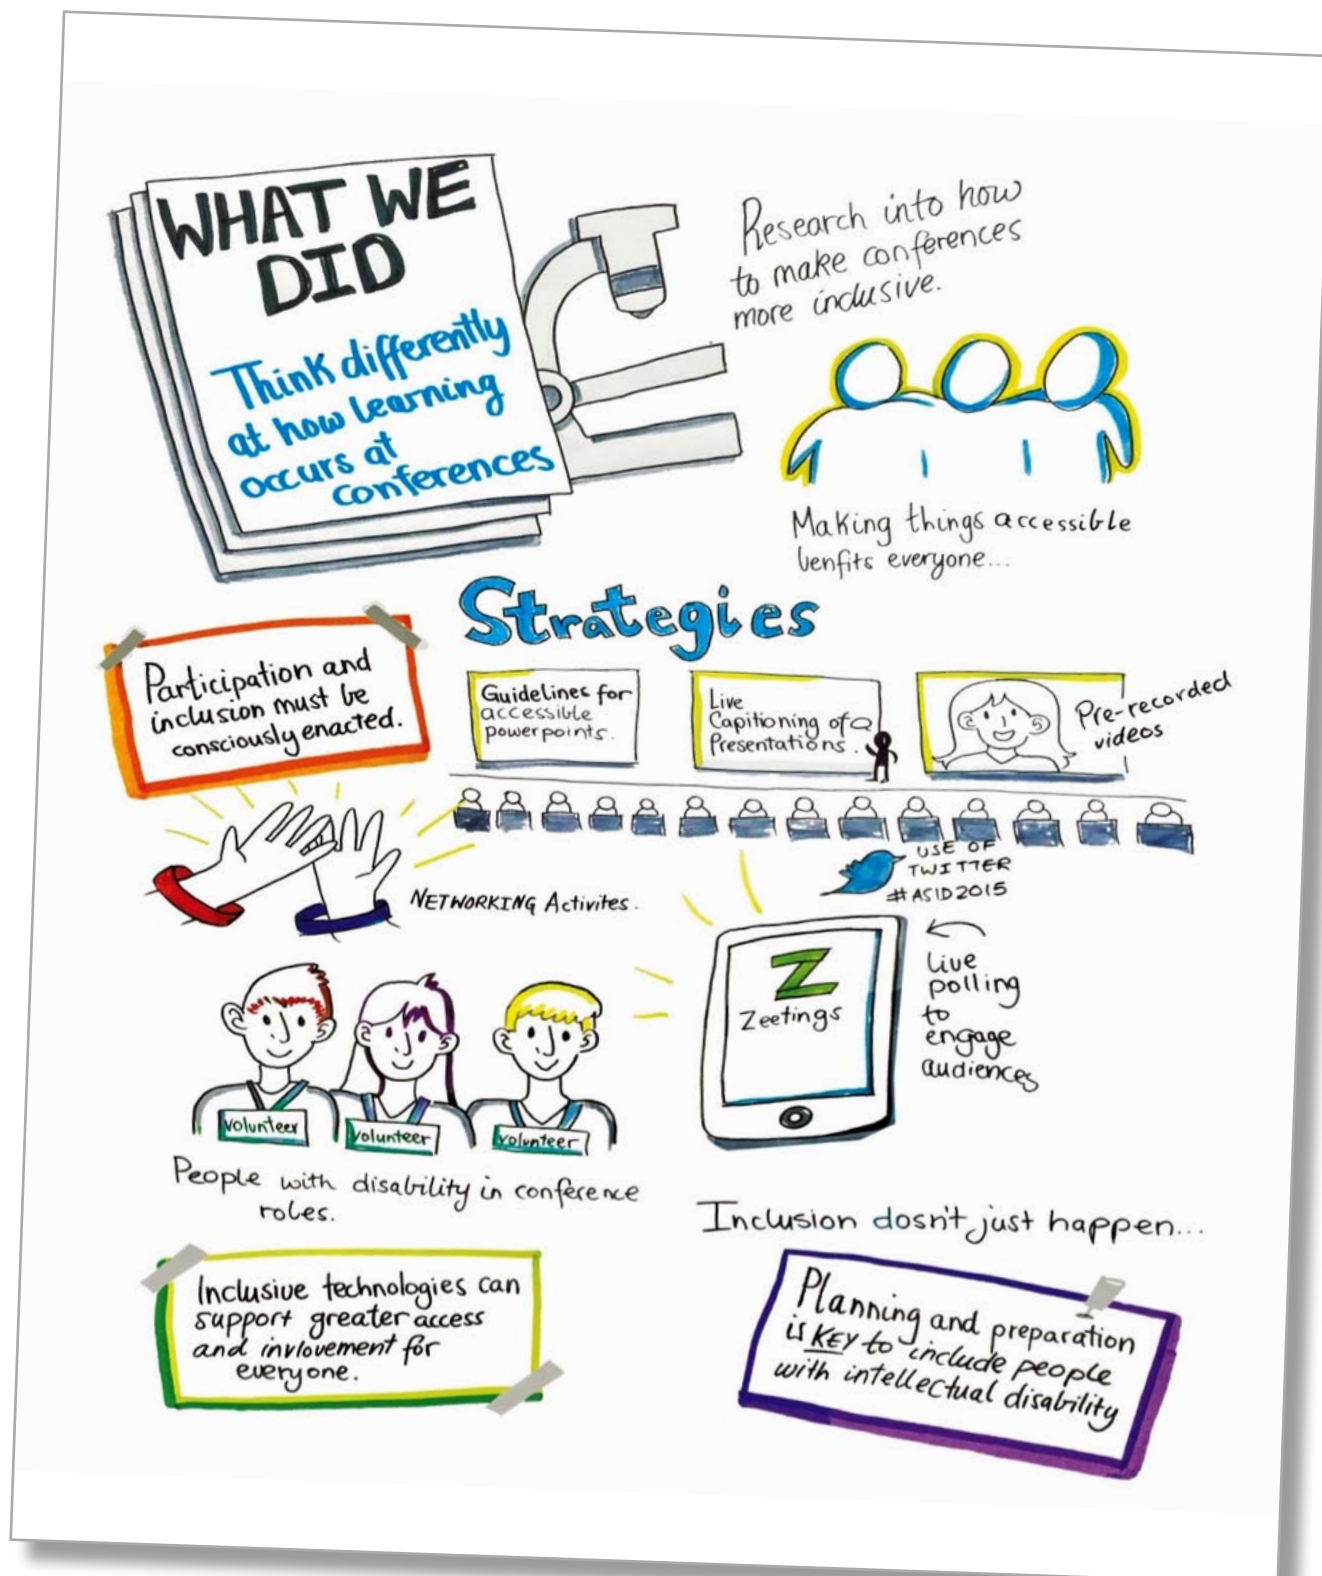 WHAT WE
DID
Think differently
at how learning
occurs at
conferences
Research into how
to make conferences
more inclusive.
Making things accessible
benfits everyone...
Strategies
Participation and
inclusion must be
consciously enacted.
Guidelines for
accessible
powerpoints.
Live
Capitioning of
Presentations.
Pre-recorded
videos
NETWORKING Activites.
USE OF
TWITTER
#ASID2015
Z
Zeetings
Live
polling
to
engage
audiences
volunteer
volunteer
volunteer
People with disability in conference
roles.
Inclusion dosn't just happen...
Inclusive technologies can
support greater access
and invlovement for
everyone.
Planning and preparation
is KEY to include people
with intellectual disability